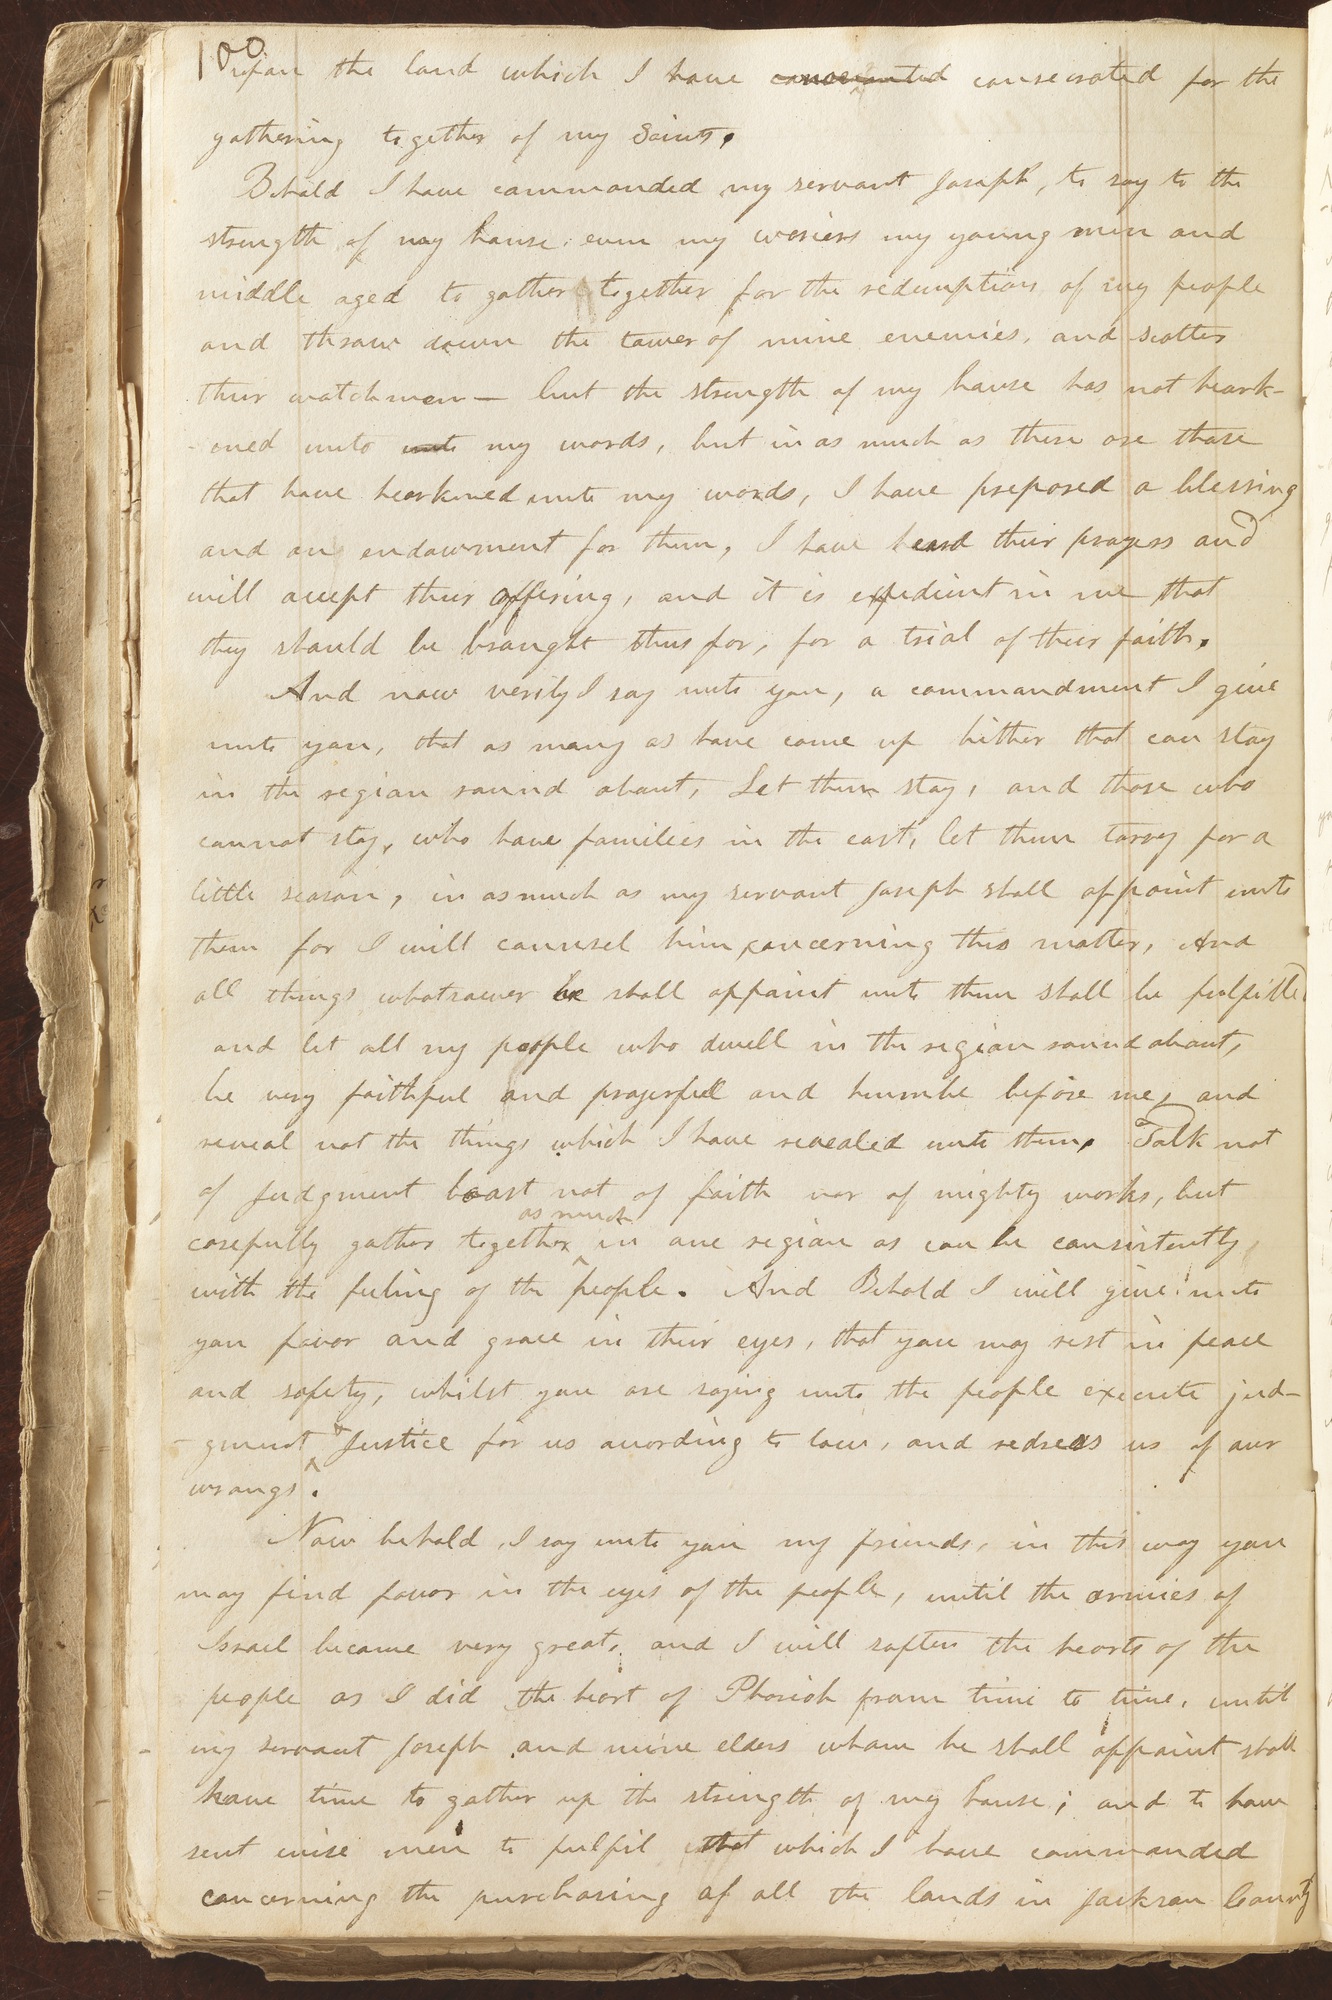 100
upon the land which I have concecrated consecrated for the
gathering together of my Saints.
Behold I have commanded my servant Joseph, to say to the
strength of my house even my woriers my young men and
middle aged to gather together for the redemption of my people
and throw down the tower of mine enemies, and scatter
their watchmen— but the strength of my house has not heark-
-ened unto unto my words, but in as much as there are those
that have hearkened unto my words, I have prepared a blessing
and an endowment for them, I have heard their prayers and
will accept their offering, and it is expedient in me that
they should be brought thus far, for a trial of their faith.
And now verily I say unto you, a commandment I give
unto you, that as many as have come up hither that can stay
in the region round about, Let them stay, and those who
cannot stay, who have families in the east, let them tarry for a
little season, in as much as my servant Joseph shall appoint unto
them for I will counsel him concerning this matter, And
all things whatsoever he shall appoint unto them shall be fulfilled
and let all my people who dwell in the region round about,
be very faithful and prayerfull and humble before me, and
reveal not the things which I have revealed unto them. Talk not
of Judgment boast not of faith nor of mighty works, but
as much
carefully gather together ^ in one region as can be consistently
with the feeling of the people. And Behold I will give unto
you favor and grace in their eyes, that you may rest in peace
and safety, whilst you are saying unto the people execute jud-
-gment & Justice for us according to law, and redress us of our
wrongs.
Now behold, I say unto you my friends, in this way you
may find favor in the eyes of the people, until the armies of
Israel become very great, and I will soften the hearts of the
people as I did the heart of Pharioh from time to time, until
my servant Joseph and mine elders whom he shall appoint shall
have time to gather up the strength of my house; and to have
sent wise men to fulfil that which I have commanded
concerning the purchasing of all the lands in Jackson County